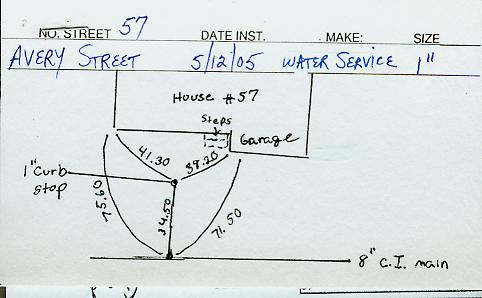 NO. STREET 57 DATE INST. MAKE: SIZE
AVERY STREET 5/12/05 WATER SERVICE 1"
House #57
Steps
Garage
41.30 38.20
1" curb
stop
75.60 34.50 71.50
8" C.I. main